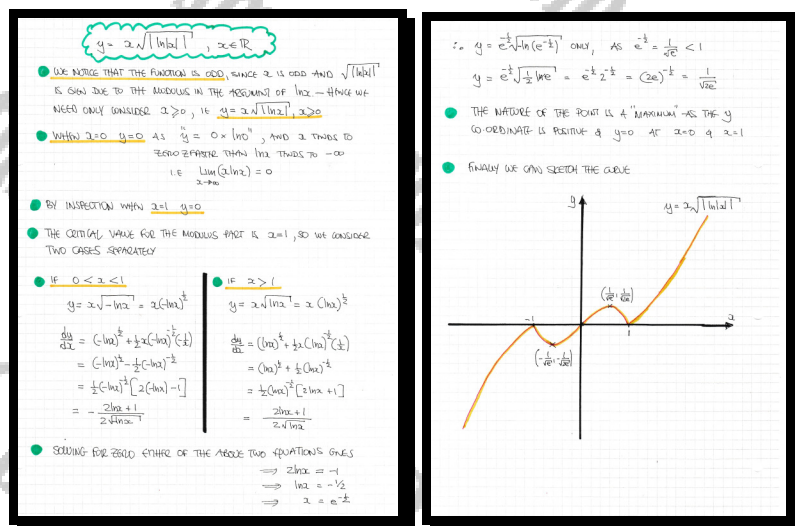 y = x√|ln|x|| , x∈ℝ
WE NOTICE THAT THE FUNCTION IS ODD, SINCE x IS ODD AND √|ln|x||
IS EVEN DUE TO THE MODULUS IN THE ARGUMENT OF lnx – HENCE WE
NEED ONLY CONSIDER x⩾0, IE y = x√|lnx|, x⩾0
WHEN x=0 y=0 AS "y = 0 × ln0", AND x TENDS TO
ZERO FASTER THAN lnx TENDS TO -∞
I.E Lim (xlnx) = 0
x→∞
BY INSPECTION WHEN x=1 y=0
THE CRITICAL VALUE FOR THE MODULUS PART IS x=1, SO WE CONSIDER
TWO CASES SEPARATELY
IF 0 < x < 1
y = x√-lnx = x(-lnx)^½
dy/dx = (-lnx)^½ + ½x(-lnx)^-½(-1/x)
= (-lnx)^½ - ½(-lnx)^-½
= ½(-lnx)^-½[2(-lnx)-1]
= - (2lnx+1)/(2√-lnx)
IF x > 1
y = x√lnx = x (lnx)^½
dy/dx = (lnx)^½ + ½x(lnx)^-½(1/x)
= (lnx)^½ + ½(lnx)^-½
= ½(lnx)^-½[2lnx+1]
= (2lnx+1)/(2√lnx)
SOLVING FOR ZERO EITHER OF THE ABOVE TWO EQUATIONS GIVES
⇒ 2lnx = -1
⇒ lnx = -1/2
⇒ x = e^-½
∴ y = e^-½√-ln(e^-½) ONLY, AS e^-½ = 1/√e < 1
y = e^-½√½lne = e^-½ 2^-½ = (2e)^-½ = 1/√2e
THE NATURE OF THE POINT IS A "MAXIMUM" AS THE y
CO-ORDINATE IS POSITIVE & y=0 AT x=0 & x=1
FINALLY WE CAN SKETCH THE CURVE
y
y = x√|ln|x||
(1/√e, 1/√2e)
x
-1
1
(-1/√e, -1/√2e)